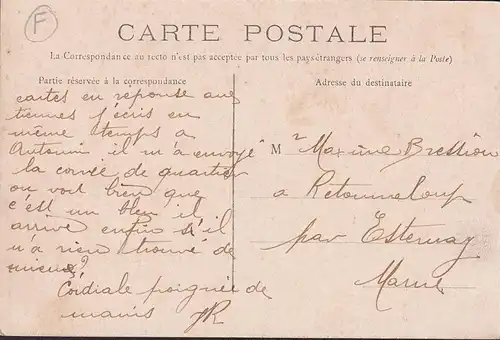 F
CARTE POSTALE
La Correspondance au recto n'est pas acceptée par tous les pays étrangers (se renseigner à la Poste)
Partie réservée à la correspondance
cartes en reponse aux
tiennes j'écris en
même temps a
Antonin il m'a envoyé
la corvée de quartier
on voit bien que
c'est un bleu il
arrive enfin s'il
n'a rien trouvé de
mieux?
Cordiale poignée de
mains JR
Adresse du destinataire
M r Maxime Bression
a Retourneloup
par Esternay
Marne